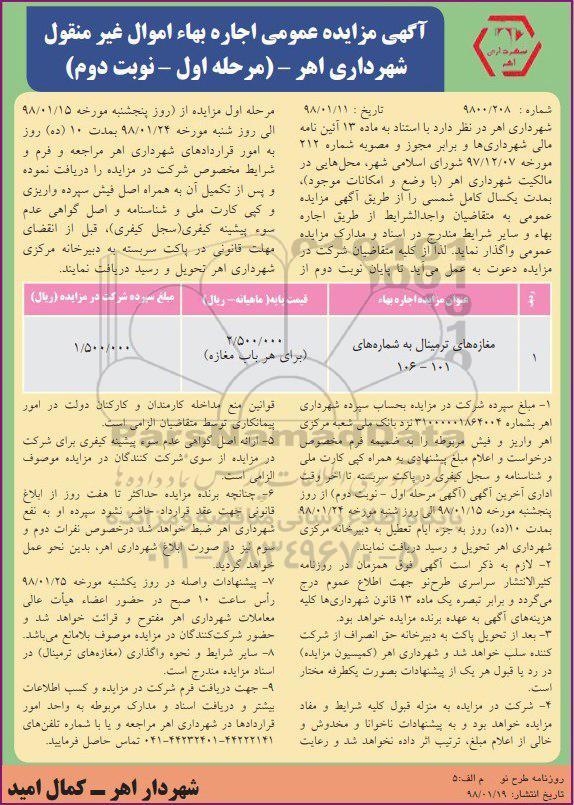 آگهی مزایده عمومی اجاره بهاء اموال غیر منقول
شهرداری اهر – (مرحله اول – نوبت دوم)
شهرداری
اهر
شماره : ۹۸۰۰/۲۰۸ تاریخ : ۹۸/۰۱/۱۱
شهرداری اهر در نظر دارد با استناد به ماده ۱۳ آئین نامه
مالی شهرداری‌ها و برابر مجوز و مصوبه شماره ۲۱۲
مورخه ۹۷/۱۲/۰۷ شورای اسلامی شهر، محل‌هایی در
مالکیت شهرداری اهر (با وضع و امکانات موجود)،
بمدت یکسال کامل شمسی را از طریق آگهی مزایده
عمومی به متقاضیان واجدالشرایط از طریق اجاره
بهاء و سایر شرایط مندرج در اسناد و مدارک مزایده
عمومی واگذار نماید. لذا از کلیه متقاضیان شرکت در
مزایده دعوت به عمل می‌آید تا پایان نوبت دوم از
مرحله اول مزایده از (روز پنجشنبه مورخه ۹۸/۰۱/۱۵
الی روز شنبه مورخه ۹۸/۰۱/۲۴ بمدت ۱۰ (ده) روز
به امور قراردادهای شهرداری اهر مراجعه و فرم و
شرایط مخصوص شرکت در مزایده را دریافت نموده
و پس از تکمیل آن به همراه اصل فیش سپرده واریزی
و کپی کارت ملی و شناسنامه و اصل گواهی عدم
سوء پیشینه کیفری(سجل کیفری)، قبل از انقضای
مهلت قانونی در پاکت سربسته به دبیرخانه مرکزی
شهرداری اهر تحویل و رسید دریافت نمایند.
ردیف عنوان مزایده اجاره بهاء قیمت پایه( ماهیانه– ریال) مبلغ سپرده شرکت در مزایده (ریال)
۱ مغازه‌های ترمینال به شماره‌های ۱۰۱ – ۱۰۶ ۲/۵۰۰/۰۰۰ (برای هر باب مغازه) ۱/۵۰۰/۰۰۰
۱– مبلغ سپرده شرکت در مزایده بحساب سپرده شهرداری
اهر بشماره ۳۱۰۰۰۰۰۱۸۶۴۰۰۴ نزد بانک ملی شعبه مرکزی
اهر واریز و فیش مربوطه را به ضمیمه فرم مخصوص
درخواست و اعلام مبلغ پیشنهادی به همراه کپی کارت ملی
و شناسنامه و سجل کیفری در پاکت سربسته تا آخر وقت
اداری آخرین آگهی (آگهی مرحله اول – نوبت دوم) از روز
پنجشنبه مورخه ۹۸/۰۱/۱۵ الی روز شنبه مورخه ۹۸/۰۱/۲۴
بمدت ۱۰(ده) روز به جزء ایام تعطیل به دبیرخانه مرکزی
شهرداری اهر تحویل و رسید دریافت نمایند.
۲– لازم به ذکر است آگهی فوق همزمان در روزنامه
کثیرالانتشار سراسری طرح‌نو جهت اطلاع عموم درج
می‌گردد و برابر تبصره یک ماده ۱۳ قانون شهرداری‌ها کلیه
هزینه‌های آگهی به عهده برنده مزایده خواهد بود.
۳– بعد از تحویل پاکت به دبیرخانه حق انصراف از شرکت
کننده سلب خواهد شد و شهرداری اهر (کمیسیون مزایده)
در رد یا قبول هر یک از پیشنهادات بصورت یکطرفه مختار
است.
۴– شرکت در مزایده به منزله قبول کلیه شرایط و مفاد
مزایده خواهد بود و به پیشنهادات ناخوانا و مخدوش و
خالی از اعلام مبلغ، ترتیب اثر داده نخواهد شد و رعایت
قوانین منع مداخله کارمندان و کارکنان دولت در امور
پیمانکاری توسط متقاضیان الزامی است.
۵– ارائه اصل گواهی عدم سوء پیشینه کیفری برای شرکت
در مزایده از سوی شرکت کنندگان در مزایده موصوف
الزامی است.
۶– چنانچه برنده مزایده حداکثر تا هفت روز از ابلاغ
قانونی جهت عقد قرارداد حاضر نشود سپرده او به نفع
شهرداری اهر ضبط خواهد شد درخصوص نفرات دوم و
سوم نیز در صورت ابلاغ شهرداری اهر، بدین نحو عمل
خواهد گردید.
۷– پیشنهادات واصله در روز یکشنبه مورخه ۹۸/۰۱/۲۵
رأس ساعت ۱۰ صبح در حضور اعضاء هیأت عالی
معاملات شهرداری اهر مفتوح و قرائت خواهد شد و
حضور شرکت‌کنندگان در مزایده موصوف بلامانع می‌باشد.
۸– سایر شرایط و نحوه واگذاری (مغازه‌های ترمینال) در
اسناد مزایده مندرج است.
۹– جهت دریافت فرم شرکت در مزایده و کسب اطلاعات
بیشتر و دریافت اسناد و مدارک مربوطه به واحد امور
قراردادها در شهرداری اهر مراجعه و یا با شماره تلفن‌های
۴۴۲۲۲۱۴۱-۰۴۱-۴۴۲۳۲۴۰۱ تماس حاصل فرمایید.
روزنامه طرح نو م الف:۵
تاریخ انتشار: ۹۸/۰۱/۱۹
شهردار اهر ــ کمال امید
۰۲۱-۸۸۳۴۹۶۷۰-۵